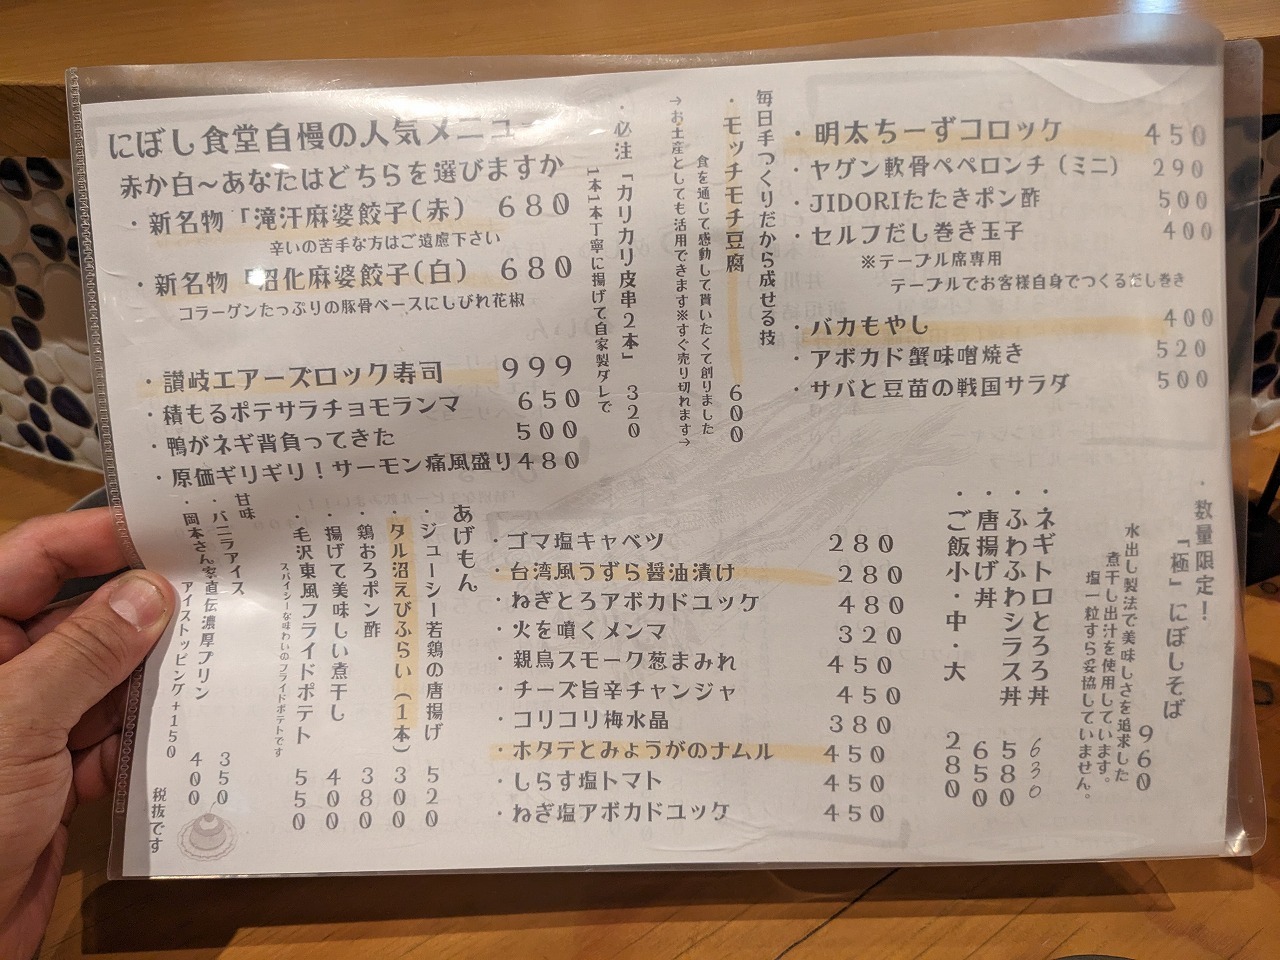 にぼし食堂自慢の人気メニュー
赤か白～あなたはどちらを選びますか
・新名物「滝汗麻婆餃子(赤) 680
辛いの苦手な方はご遠慮下さい
・新名物「沼化麻婆餃子(白) 680
コラーゲンたっぷりの豚骨ベースにしびれ花椒
・讃岐エアーズロック寿司 999
・積もるポテサラチョモランマ 650
・鴨がネギ背負ってきた 500
・原価ギリギリ！サーモン痛風盛り 480
・必注「カリカリ皮串2本」 320
1本1本丁寧に揚げて自家製ダレで
毎日手つくりだから成せる技
・モッチモチ豆腐 600
食を通じて感動して貰いたくて創りました
→お土産としても活用できます※すぐ売り切れます→
・明太ちーずコロッケ 450
・ヤゲン軟骨ペペロンチ（ミニ） 290
・JIDORIたたきポン酢 500
・セルフだし巻き玉子 400
※テーブル席専用
テーブルでお客様自身でつくるだし巻き
・バカもやし 400
・アボカド蟹味噌焼き 520
・サバと豆苗の戦国サラダ 500
・数量限定！
「極」にぼしそば 960
水出し製法で美味しさを追求した
煮干し出汁を使用しています。
塩一粒すら妥協していません。
・ネギトロとろろ丼 630
・ふわふわシラス丼 580
・唐揚げ丼 650
・ご飯小・中・大 280
・ゴマ塩キャベツ 280
・台湾風うずら醤油漬け 280
・ねぎとろアボカドユッケ 480
・火を噴くメンマ 320
・親鳥スモーク葱まみれ 450
・チーズ旨辛チャンジャ 450
・コリコリ梅水晶 380
・ホタテとみょうがのナムル 450
・しらす塩トマト 450
・ねぎ塩アボカドユッケ 450
あげもん
・ジューシー若鶏の唐揚げ 520
・タル沼えびふらい（1本） 300
・鶏おろポン酢 380
・揚げて美味しい煮干し 400
・毛沢東風フライドポテト 550
スパイシーな味わいのフライドポテトです
甘味
・バニラアイス 350
・岡本さん家直伝濃厚プリン 400
アイストッピング+150
税抜です